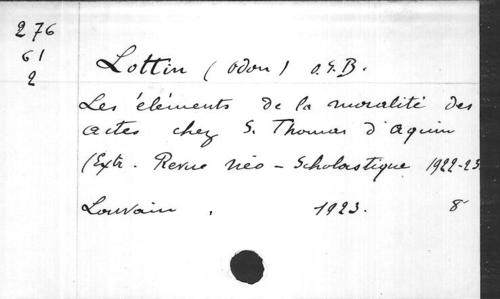 276
61
2
Lottin (Odon) O.S.B.
Les éléments de la moralité des
actes chez S. Thomas d'Aquin
(Extr. Revue néo-Scholastique 1922-23
Louvain, 1923. 8°